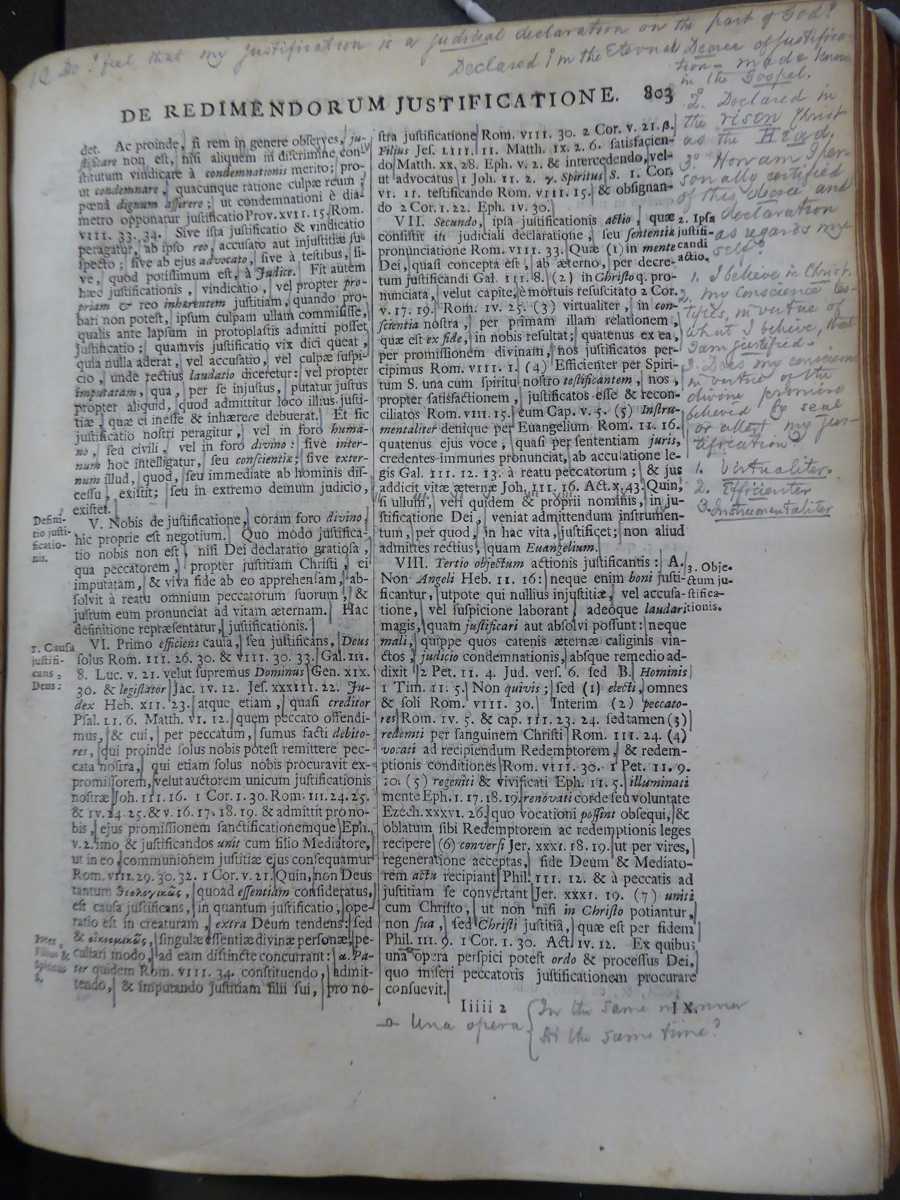 12 Do I feel that my Justification is a judicial declaration on the part of God?
Declared I'm the Eternal Decree of Justifica-
tion - made known
in the Gospel.
2. Declared in
the risen Christ
as the Head.
3° How am I per-
sonally certified
of this decree and
declaration
as regards my
self?
1. I believe in Christ.
2. my conscience tes-
tifies, in virtue of
what I believe, that
I am justified.
3. Does my conscience
in virtue of the
divine promise
believed to seal
or attest my jus-
tification?
1. Virtualiter.
2. Efficienter
3. Instrumentaliter
DE REDIMENDORUM JUSTIFICATIONE. 803
det. Ac proinde, si rem in genere observes, ju-
stificare non est, nisi aliquem in discrimine con-
stitutum vindicare à condemnationis merito; pro-
ut condemnare, quacunque ratione culpæ reum,
pœnâ dignum asserere; ut condemnationi è dia-
metro opponatur justificatio Prov. XVII. 15. Rom.
VIII. 33. 34. Sive ista justificatio & vindicatio
peragatur, ab ipso reo, accusato aut injustitiæ su-
specto; sive ab ejus advocato, sive à testibus, si-
ve, quod potissimum est, à Judice. Fit autem
hæc justificationis, vindicatio, vel propter pro-
priam & reo inhærentem justitiam, quando pro-
bari non potest, ipsum culpam ullam commisisse,
qualis ante lapsum in protoplastis admitti posset
justificatio; quamvis justificatio vix dici queat,
quia nulla aderat, vel accusatio, vel culpæ suspi-
cio, unde rectius laudatio diceretur: vel propter
imputatam, qua, per se injustus, putatur justus
propter aliquid, quod admittitur loco illius justi-
tiæ, quæ ei inesse & inhærere debuerat. Et sic
justificatio nostri peragitur, vel in foro huma-
no, seu civili, vel in foro divino: sive inter-
num hoc intelligatur, seu conscientiæ; sive exter-
num illud, quod, seu immediate ab hominis dis-
cessu, existit; seu in extremo demum judicio,
existet.
Defini-
tio justi-
ficatio-
nis.
V. Nobis de justificatione, coram foro divino,
hic proprie est negotium. Quo modo justifica-
tio nobis non est, nisi Dei declaratio gratiosa,
qua peccatorem, propter justitiam Christi, ei
imputatam, & viva fide ab eo apprehensam, ab-
solvit à reatu omnium peccatorum suorum, &
justum eum pronunciat ad vitam æternam. Hac
definitione repræsentatur, justificationis.
1. Causa
justifi-
cans,
Deus:
VI. Primo efficiens causa, seu justificans, Deus
solus Rom. III. 26. 30. & VIII. 30. 33. Gal. III.
8. Luc. V. 21. velut supremus Dominus Gen. XIX.
30. & legislator Jac. IV. 12. Jes. XXXIII. 22. Ju-
dex Heb. XII. 23. atque etiam, quasi creditor
Psal. 11. 6. Matth. VI. 12. quem peccato offendi-
mus, & cui, per peccatum, sumus facti debito-
res, qui proinde solus nobis potest remittere pec-
cata nostra, qui etiam solus nobis procuravit ex-
promissorem, velut auctorem unicum justificationis
nostræ Joh. III. 16. 1 Cor. 1. 30. Rom. III. 24. 25.
& IV. 24. 25. & V. 16. 17. 18. 19. & admittit pro no-
bis, ejus promissionem sanctificationemque Eph.
V. 2. imo & justificandos unit cum filio Mediatore,
ut in eo, communionem justitiæ ejus consequamur
Rom. VIII. 29. 30. 32. 1 Cor. V. 21. Quin, non Deus
tantum θεολογικῶς, quoad essentiam consideratus,
est causa justificans, in quantum justificatio, ope-
ratio est in creaturam, extra Deum tendens: sed
Pater,
Filius &
Spiritus
S.
& οἰκονομικῶς, singulæ essentiæ divinæ personæ, pe-
culiari modo, ad eam distincte concurrant: α. Pa-
ter quidem Rom. VIII. 34. constituendo, admit-
tendo, & imputando justitiam filii sui, pro no-
stra justificatione Rom. VIII. 30. 2 Cor. V. 21. β.
Filius Jes. LIII. 11. Matth. IX. 2. 6. satisfacien-
do Matth. XX. 28. Eph. V. 2. & intercedendo, vel-
ut advocatus 1 Joh. II. 2. γ. Spiritus S. 1. Cor.
VI. 11. testificando Rom. VIII. 15. & obsignan-
do 2 Cor. 1. 22. Eph. IV. 30.
VII. Secundo, ipsa justificationis actio, quæ
consistit in judiciali declaratione, seu sententiæ
pronunciatione Rom. VIII. 33. Quæ (1) in mente
Dei, quasi concepta est, ab æterno, per decre-
tum justificandi Gal. III. 8. (2) in Christo q. pro-
nunciata, velut capite, è mortuis resuscitato 2 Cor.
V. 17. 19. Rom. IV. 25. (3) virtualiter, in con-
scientia nostra, per primam illam relationem,
quæ est ex fide, in nobis resultat; quatenus ex ea,
per promissionem divinam, nos justificatos per-
cipimus Rom. VIII. 1. (4) Efficienter per Spiri-
tum S. una cum spiritu nostro testificantem, nos,
propter satisfactionem, justificatos esse & recon-
ciliatos Rom. VIII. 15. cum Cap. V. 5. (5) Instru-
mentaliter denique per Euangelium Rom. II. 16.
quatenus ejus voce, quasi per sententiam juris,
credentes immunes pronunciat, ab accusatione le-
gis Gal. III. 12. 13. à reatu peccatorum; & jus
addicit vitæ æternæ Joh. III. 16. Act. X. 43. Quin,
si ullum, veri quidem & proprii nominis, in ju-
stificatione Dei, veniat admittendum instrumen-
tum, per quod, in hac vita, justificet; non aliud
admittes rectius, quam Euangelium.
2. Ipsa
justifi-
candi
actio.
VIII. Tertio objectum actionis justificantis: A.
Non Angeli Heb. II. 16: neque enim boni justi-
ficantur, utpote qui nullius injustitiæ, vel accusa-
tione, vel suspicione laborant, adeoque laudari
magis, quam justificari aut absolvi possunt: neque
mali, quippe quos catenis æternæ caliginis vin-
ctos, judicio condemnationis, absque remedio ad-
dixit 2 Pet. II. 4. Jud. vers. 6. sed B. Hominis
1 Tim. II. 5. Non quivis; sed (1) electi, omnes
& soli Rom. VIII. 30. Interim (2) peccato-
res Rom. IV. 5. & cap. III. 23. 24. sed tamen (3)
redemti per sanguinem Christi Rom. III. 24. (4)
vocati ad recipiendum Redemptorem, & redem-
ptionis conditiones Rom. VIII. 30. 1 Pet. II. 9.
10. (5) regeniti & vivificati Eph. II. 5. illuminati
mente Eph. 1. 17. 18. 19. renovati corde seu voluntate
Ezech. XXXVI. 26. quo vocationi possint obsequi, &
oblatum sibi Redemptorem ac redemptionis leges
recipere (6) conversi Jer. XXXI. 18. 19. ut per vires,
regeneratione acceptas, fide Deum & Mediato-
rem actu recipiant Phil. III. 12. & à peccatis ad
justitiam se convertant Jer. XXXI. 19. (7) uniti
cum Christo, ut non nisi in Christo potiantur,
non sua, sed Christi justitiâ, quæ est per fidem
Phil. III. 9. 1 Cor. 1. 30. Act. IV. 12. Ex quibus
una opera perspici potest ordo & processus Dei,
quo miseri peccatoris justificationem procurare
consuevit.
3. Obje-
ctum ju-
stifica-
tionis.
Iiiii 2 IX.
a Una opera { In the same manner
At the same time?